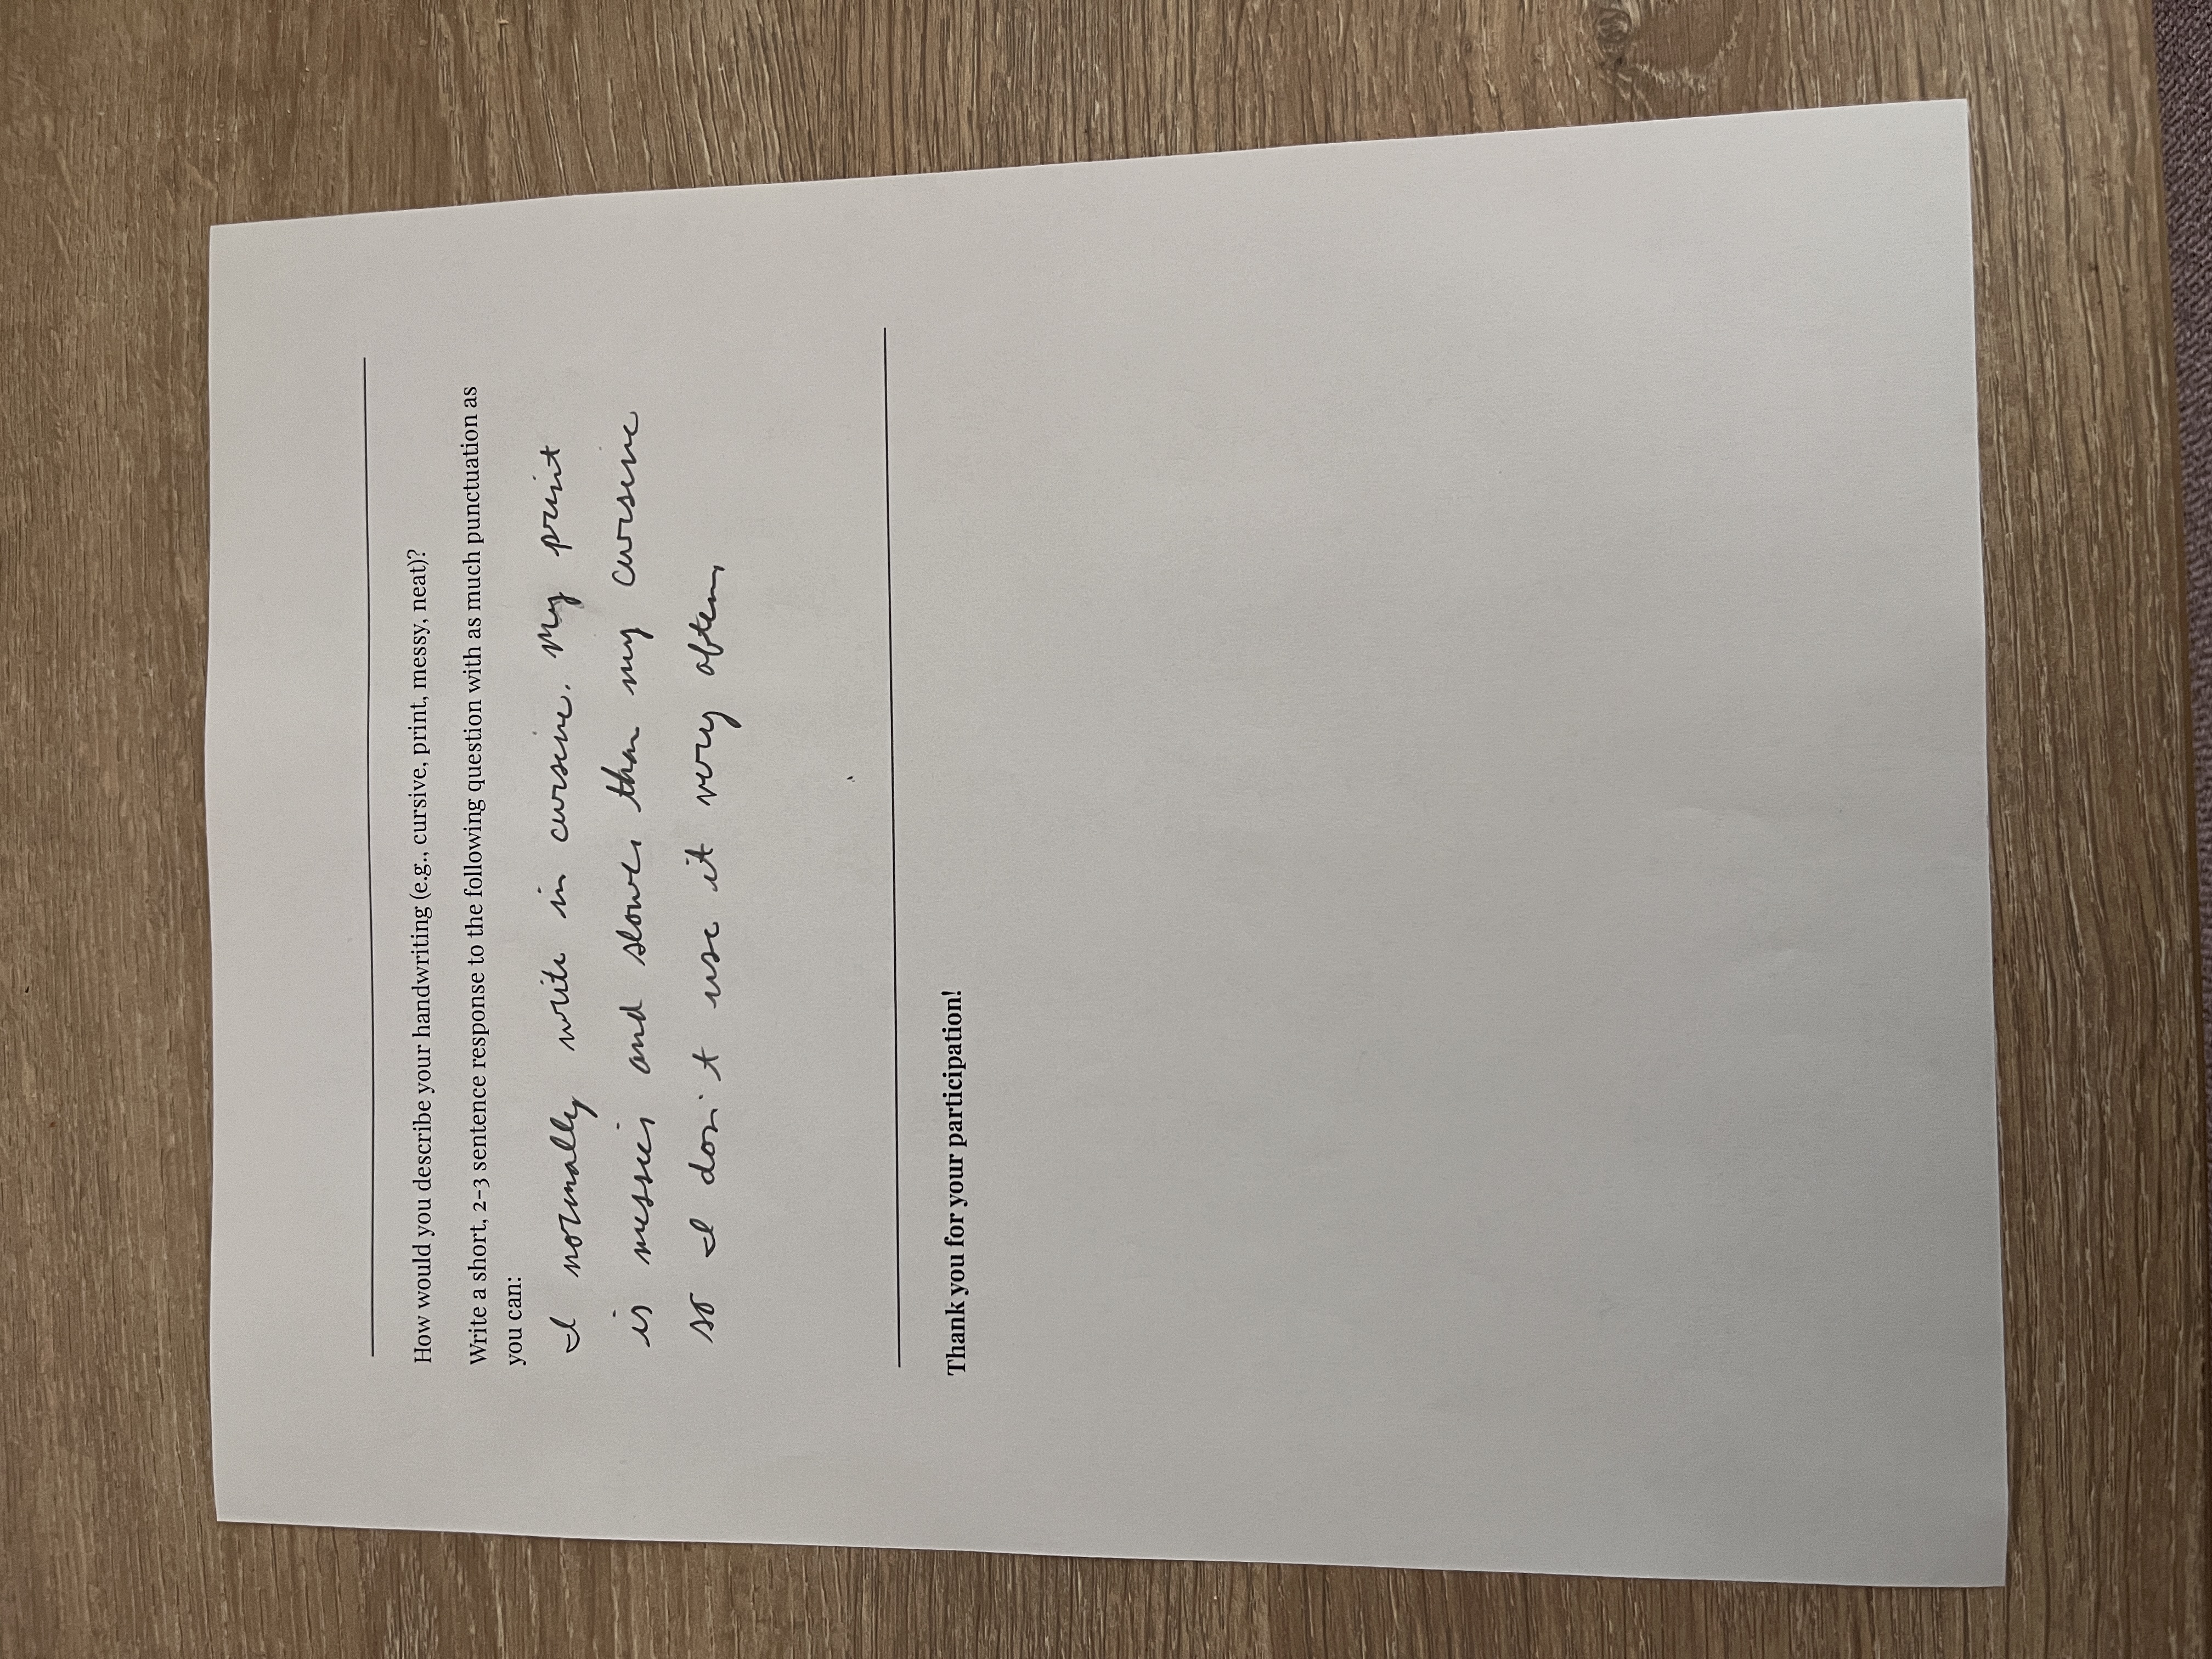 How would you describe your handwriting (e.g., cursive, print, messy, neat)?
Write a short, 2-3 sentence response to the following question with as much punctuation as
you can:
I normally write in cursive. My print
is messier and slower than my cursive
so I don't use it very often.
Thank you for your participation!